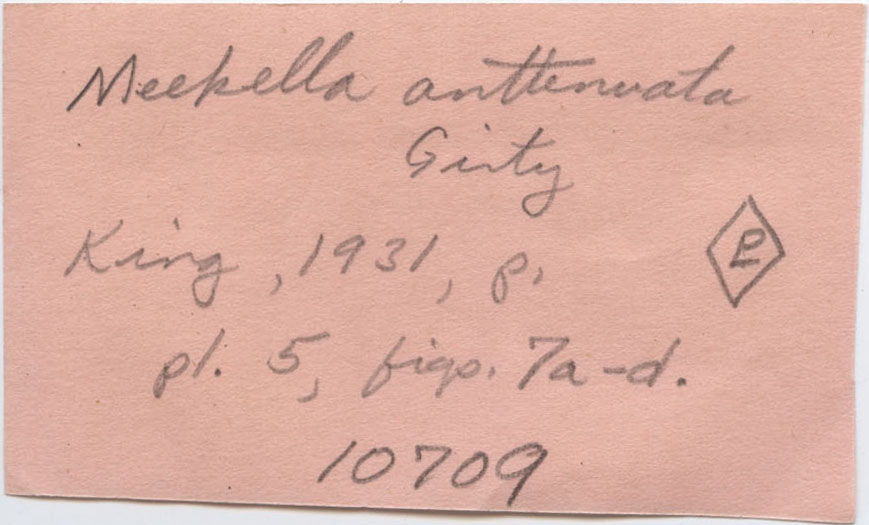 Meekella anttenuata
Girty
King, 1931, p.
P
pl. 5, figs. 7a-d.
10709